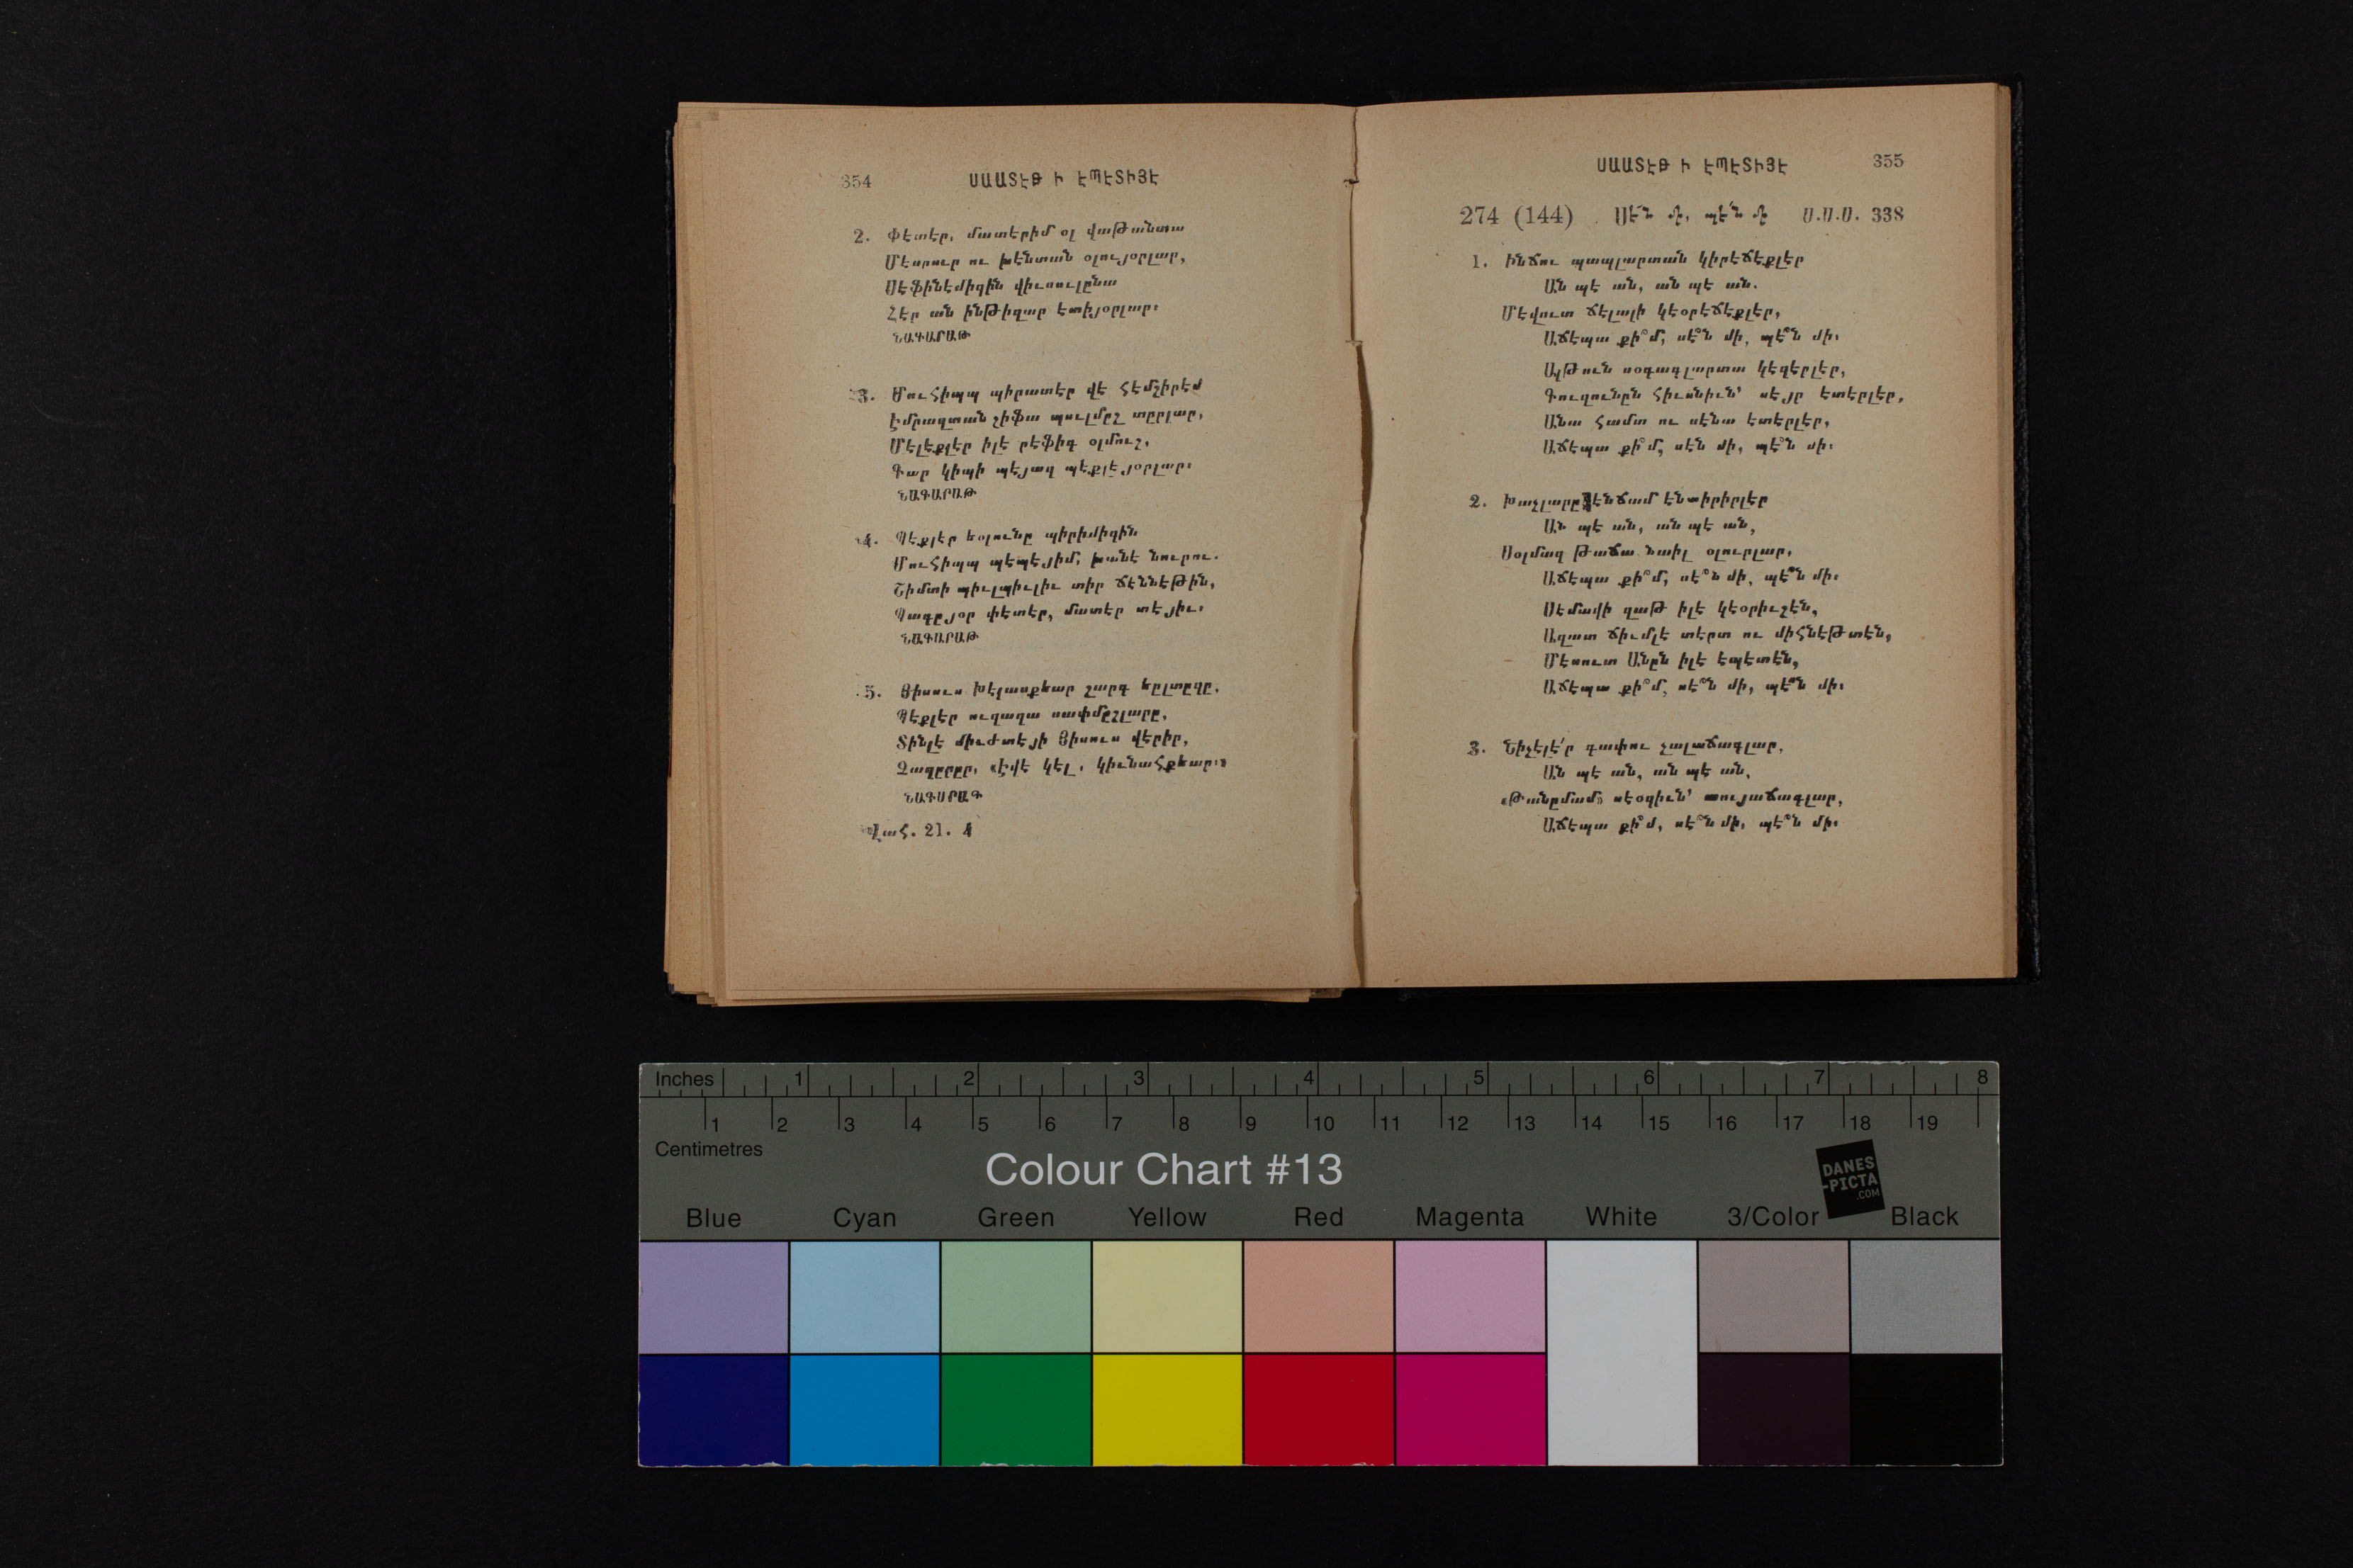 354 ՍԱԱՏԷԹ Ի ԷՊԷՏԻՅԷ
2. Փէտէր, մատէրիմ օլ վաթանտա
Մէսրուր ու խէնտան օլույօրլար,
Սէֆինէմիզին վիւսուլընա
Հէր ան ինթիզար էտիյօրլար։
ՆԱԳԱՐԱԹ
3. Մուհիպպ պիրատէր վէ հէմշիրէմ
Էմրազտան շիֆա պուլմըշ տըրլար,
Մէլէքլէր իլէ րէֆիգ օլմուշ,
Գար կիպի պէյազ պէքլէյօրլար։
ՆԱԳԱՐԱԹ
4. Պէքլէր եօլունը պիրիմիզին
Մուհիպպ պէպէյիմ, խանէ նուրու.
Շիմտի պիւլպիւլիւ տիր ճէննէթին,
Պագըյօր փէտէր, մատէր տէյիւ։
ՆԱԳԱՐԱԹ
5. Յիսուս խէլասքեար շարգ եըլտըզը,
Պէքլէր ուզաղա սափմըշլարը,
Տինլէ միւժտէյի Յիսուս վէրիր,
Չաղըրըր, «էվէ կէլ, կիւնահքեար»։
ՆԱԳԱՐԱԳ
Վահ. 21. 4
ՍԱԱՏԷԹ Ի ԷՊԷՏԻՅԷ 355
274 (144) Սէ՛ն մի, պէ՛ն մի Ս.Ս.Ս. 338
1. Ինճու պապլարտան կիրէճէքլէր
Ան պէ ան, ան պէ ան.
Մէվուտ ճէլալի կէօրէճէքլէր,
Աճէպա քի՞մ, սէ՞ն մի, պէ՞ն մի։
Ալթուն սօգագլարտա կէզէրլէր,
Գուզունըն հիւսնիւն՝ սէյր էտէրլէր,
Անա համտ ու սէնա էտէրլէր,
Աճէպա քի՞մ, սէն մի, պէ՞ն մի։
2. Խաչլարը էնճամ էնտիրիրլէր
Ան պէ ան, ան պէ ան,
Սօլմազ թաճա նաիլ օլուրլար,
Աճէպա քի՞մ, սէ՞ն մի, պէ՞ն մի։
Սէմավի զաթ իլէ կէօրիւշէն,
Ազատ ճիւմլէ տէրտ ու միհնէթտէն,
Մէսուտ Անըն իլէ էպէտէն,
Աճէպա քի՞մ, սէ՞ն մի, պէ՞ն մի։
3. Նիչէլէ՛ր գափու չալաճագլար,
Ան պէ ան, ան պէ ան,
«Թանըմամ» սէօզիւն՝ տույաճագլար,
Աճէպա քի՞մ, սէ՞ն մի, պէ՞ն մի։
Inches 1 2 3 4 5 6 7 8
1 2 3 4 5 6 7 8 9 10 11 12 13 14 15 16 17 18 19
Centimetres
Colour Chart #13
DANES
-PICTA
.COM
Blue Cyan Green Yellow Red Magenta White 3/Color Black